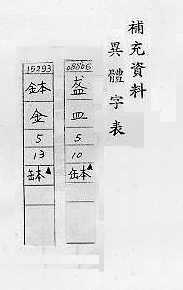 補充資料
異體字表
盋
皿
5
10
缽▲
15293
鉢
金
5
13
缽▲